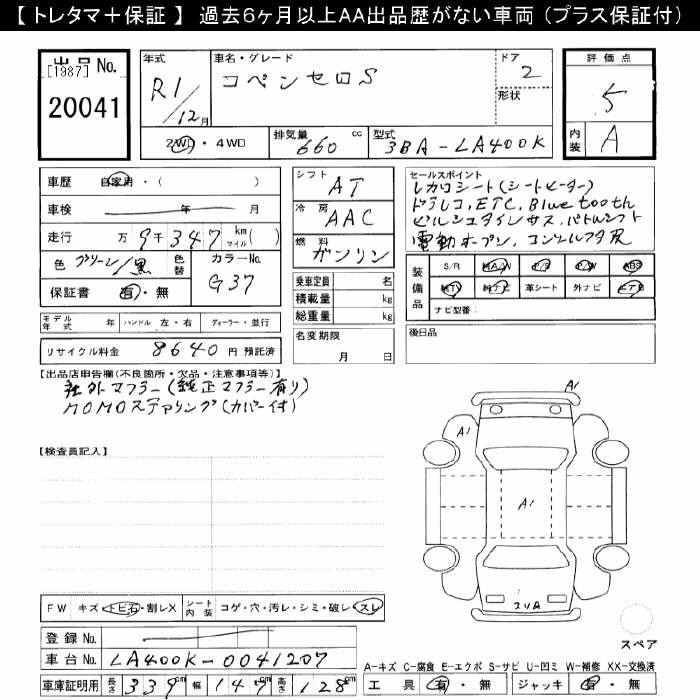 【 トレタマ＋保証 】 過去6ヶ月以上AA出品歴がない車両 （プラス保証付）
出品 No.
[1987]
20041
年式
R1/12月
車名・グレード
コペンセロS
ドア
2
形状
評価点
5
内装
A
2WD・4WD
排気量
660 cc
型式
3BA-LA400K
車歴 自家用・( )
車検 年 月
走行 万 9千347 km マイル ( )
色 グリーン/黒
色替
カラーNo.
G37
保証書 有・無
シフト
AT
冷房
AAC
燃料
ガソリン
乗車定員 名
積載量 kg
総重量 kg
セールスポイント
レカロシート(シートヒーター)
ドラレコ、ETC、Bluetooth
ビルシュタインサス、パドルシフト
電動オープン、コンソルフタ灰
装備品
S/R A/W P/S P/W ABS
純TV 純ナビ 革シート 外ナビ エアB
ナビ型番：
モデル年式 年 ハンドル 左・右 ディーラー・並行
リサイクル料金 8640 円 預託済
名変期限
月 日
後日品
【出品店申告欄(不良箇所・欠品・注意事項等)】
社外マフラー(純正マフラー有り)
MOMOステアリング(カバー付)
【検査員記入】
A1
A1
A1
スペア
FW キズ・トビ石・割レX
シート内装 コゲ・穴・汚レ・シミ・破レ・スレ
登録 No.
車台 No. LA400K-0041207
車庫証明用 長さ 339cm 幅 147cm 高さ 128cm
A-キズ C-腐食 E-エクボ S-サビ U-凹ミ W-補修 XX-交換済
工具 有・無 ジャッキ 有・無